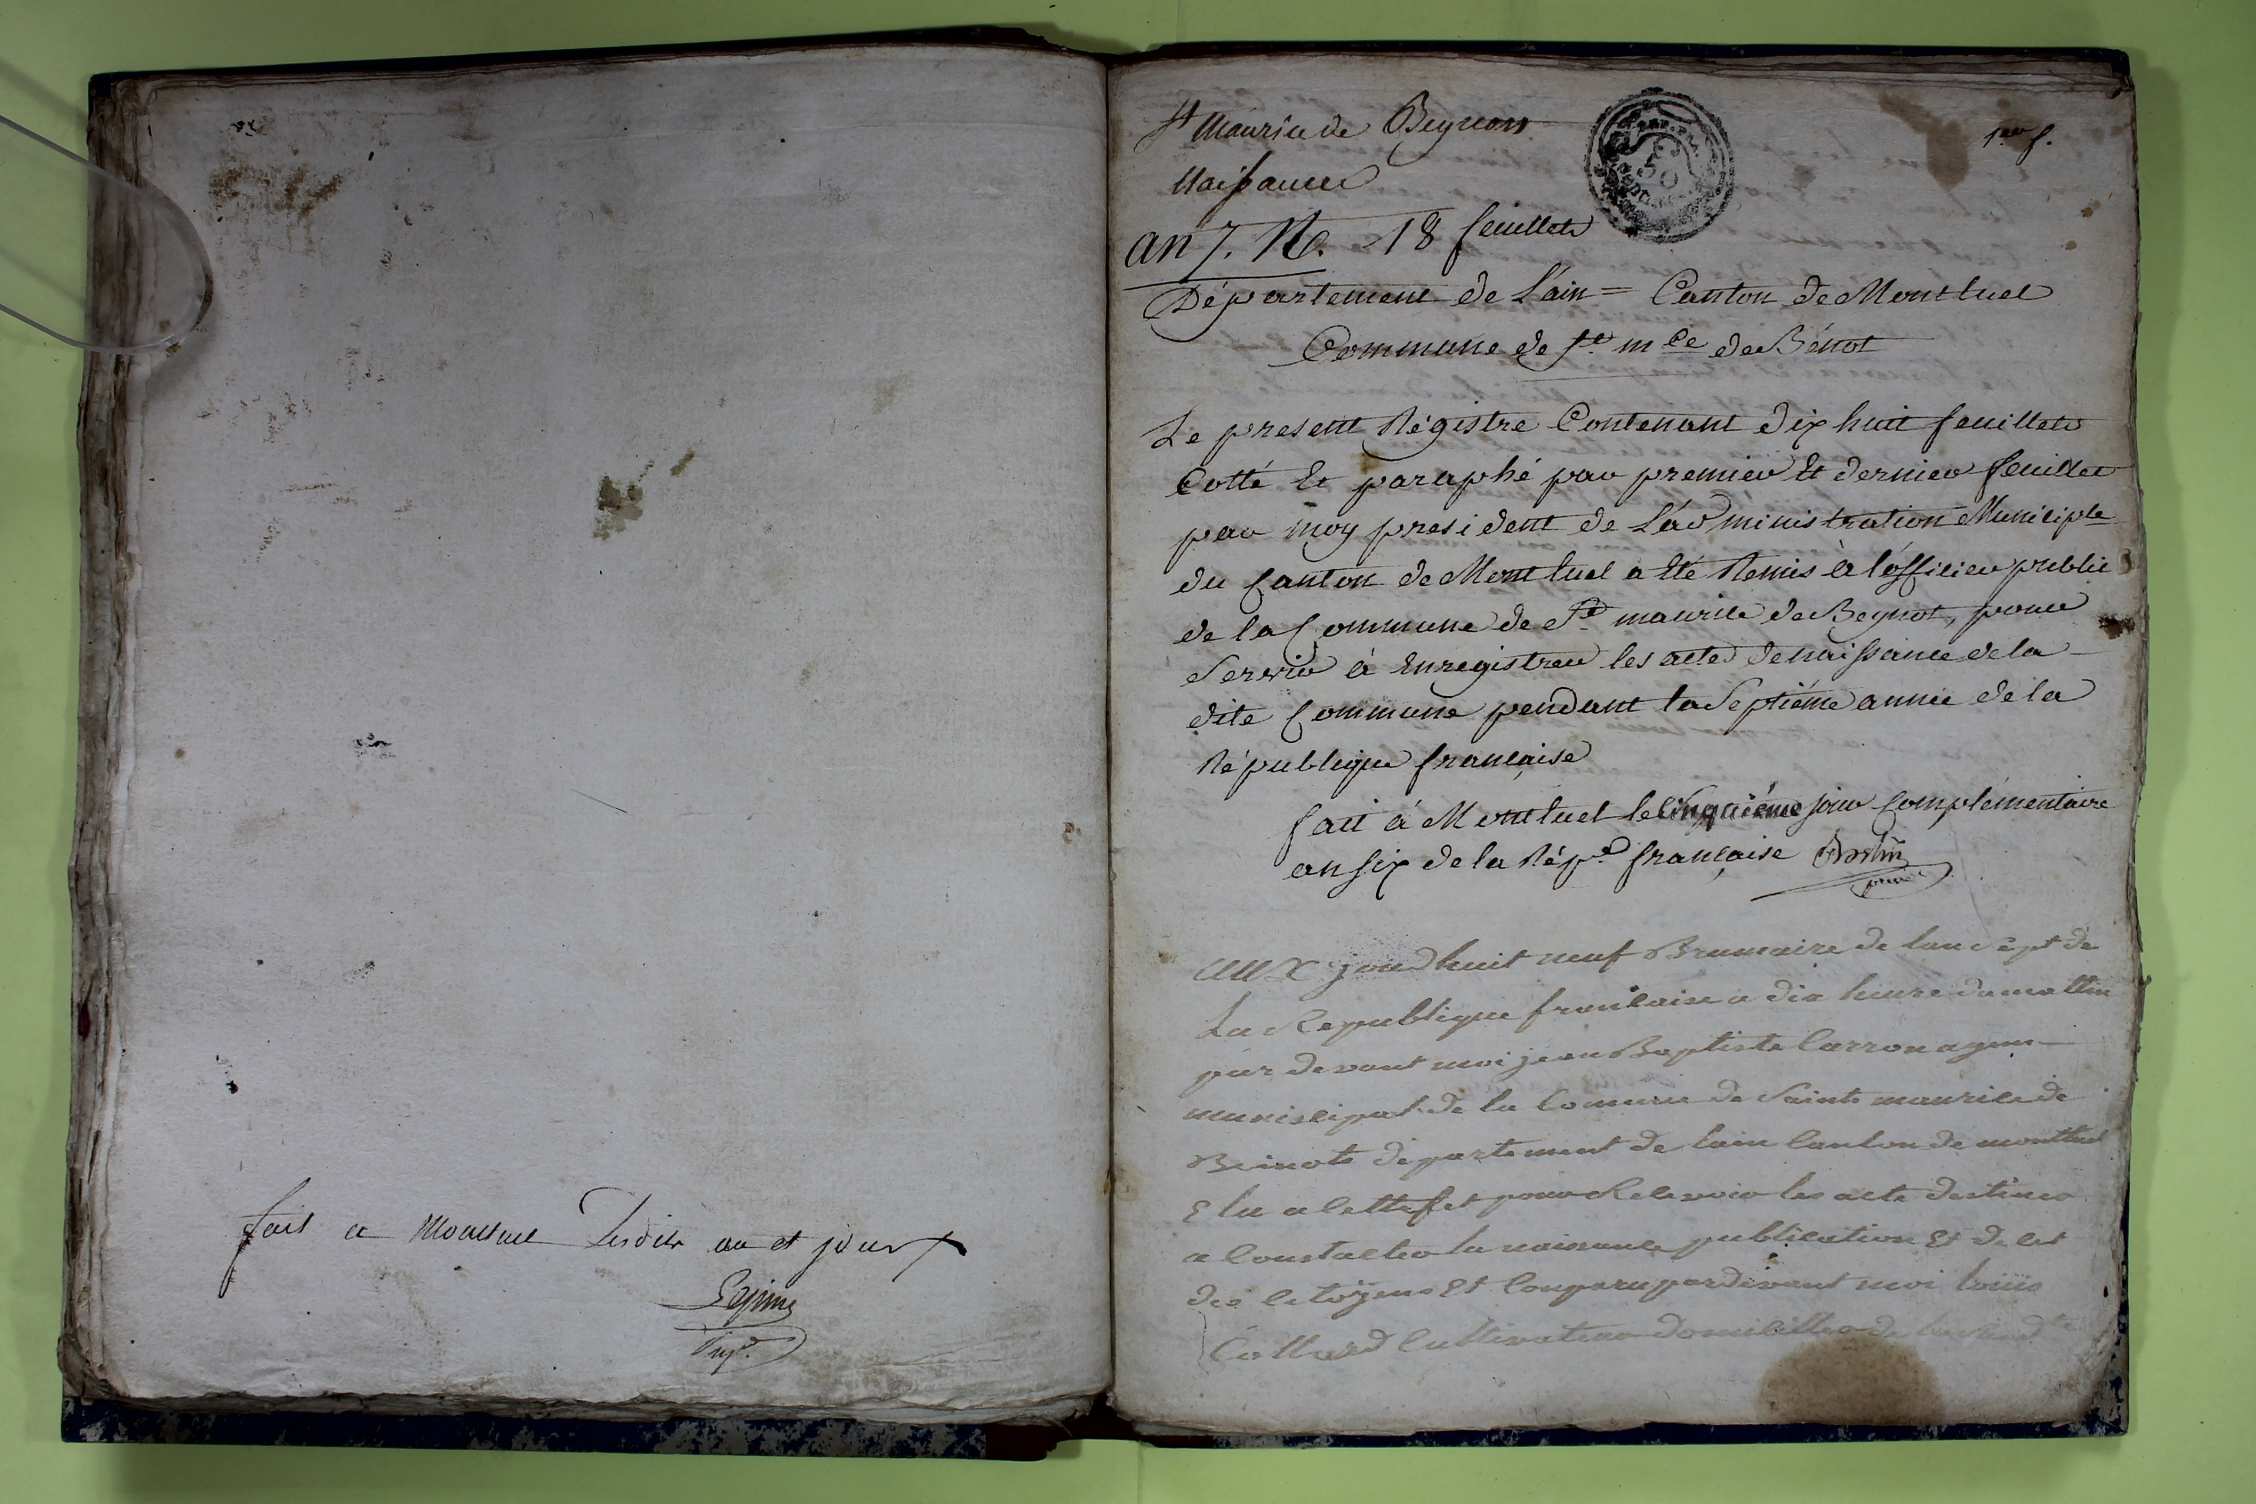 fait a Montluel Lesdits an et jour
Lepine
St Maurice de Beynost
Naissance
1er f.
an 7. N. 18 feuillets
Département de L'ain = Canton de Montluel
Commune de St. mce de Bénot
Le present Régistre Contenant dix huit feuillets
Cotté Et paraphé par premier Et dernier feuillet
par moy president de L'administration Municiple
du Canton de Montluel a Eté Remis à l'officier public
de la Commune de St. maurice de Beynot, pour
Servir à Enregistrer les actes de naissance de la
dite Commune pendant la Septiéme année de la
République française
fait à Montluel le Cinquiéme jour Complémentaire
an Six de la Rép.e française
aux jourdhuit neuf Brumaire de lan sept de
La Republique franсaise a dix heure du mattin
par devant moi jean Baptiste Carron agent
municipal de la Comune de Sainte maurice de
Beinote departement de lain Canton de montluel
Elu a lettefet pour Relevoir les acte destines
a Constatter la naissance publication Et deces
des Citoyens Et Comparu par devant moi louis
Collard Cultivateur domicillier de